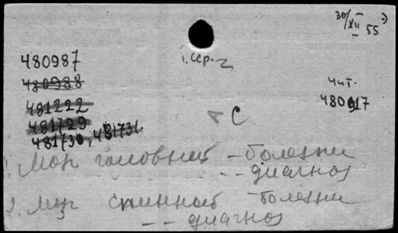 30/XII – 55
480987
1 сер. 2
480988
Чит.
481222
480917
481729
С
481730, 481731
1. Мозг головной – болезни
– – диагноз
2. Мозг спинной – болезни
– – диагноз